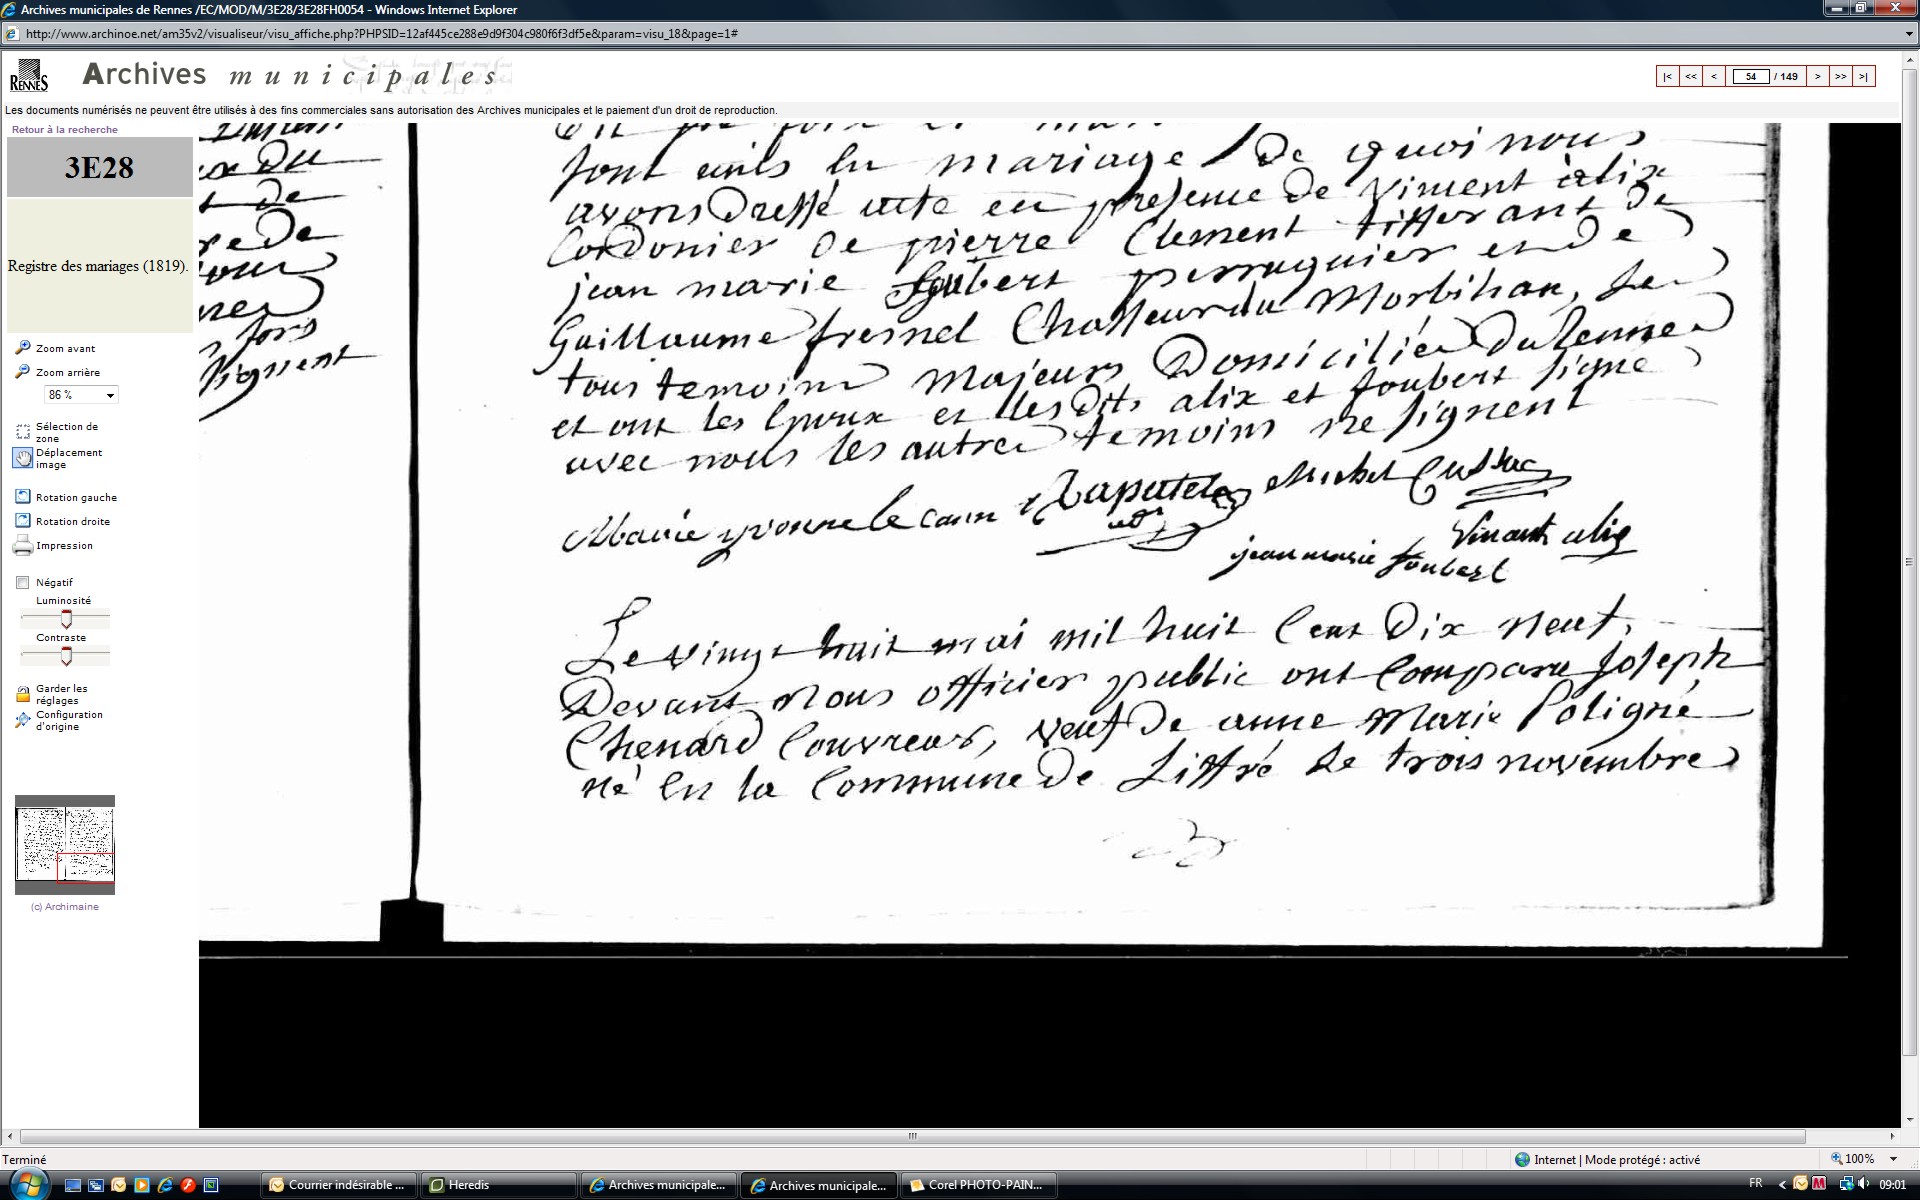 Archives municipales de Rennes /EC/MOD/M/3E28/3E28FH0054 - Windows Internet Explorer
http://www.archinoe.net/am35v2/visualiseur/visu_affiche.php?PHPSID=12af445ce288e9d9f304c980f6f3df5e&param=visu_18&page=1#
RENNES
Archives municipales
|< << < 54 / 149 > >> >|
Les documents numérisés ne peuvent être utilisés à des fins commerciales sans autorisation des Archives municipales et le paiement d'un droit de reproduction.
Retour à la recherche
3E28
Registre des mariages (1819).
Zoom avant
Zoom arrière
86 %
Sélection de
zone
Déplacement
image
Rotation gauche
Rotation droite
Impression
Négatif
Luminosité
Contraste
Garder les
réglages
Configuration
d'origine
(c) Archimaine
du
de
fors
signent
sont unis en mariage De quoi nous
avons Dressé acte en presence De Vincent alix
Cordonier De pierre Clement tisserant De
jean marie Joubert perruquier et De
Guillaume fresnel Chasseur du Morbihan, Le
tous temoins majeurs Domiciliés De Rennes
et ont les Epoux et lesDits alix et Joubert signé
avec nous les autres temoins ne signent
Marie yvonne le cam
Michel
Vincent alix
jean marie Joubert
Le vingt huit mai mil huit Cent Dix neuf,
Devant nous officier public ont Comparu Joseph
Chenard Couvreur, veuf De anne Marie Poligné
né En la Commune De Liffré Le trois novembre
Terminé
Internet | Mode protégé : activé
100%
Courrier indésirable ...
Heredis
Archives municipale...
Archives municipale...
Corel PHOTO-PAIN...
FR
09:01